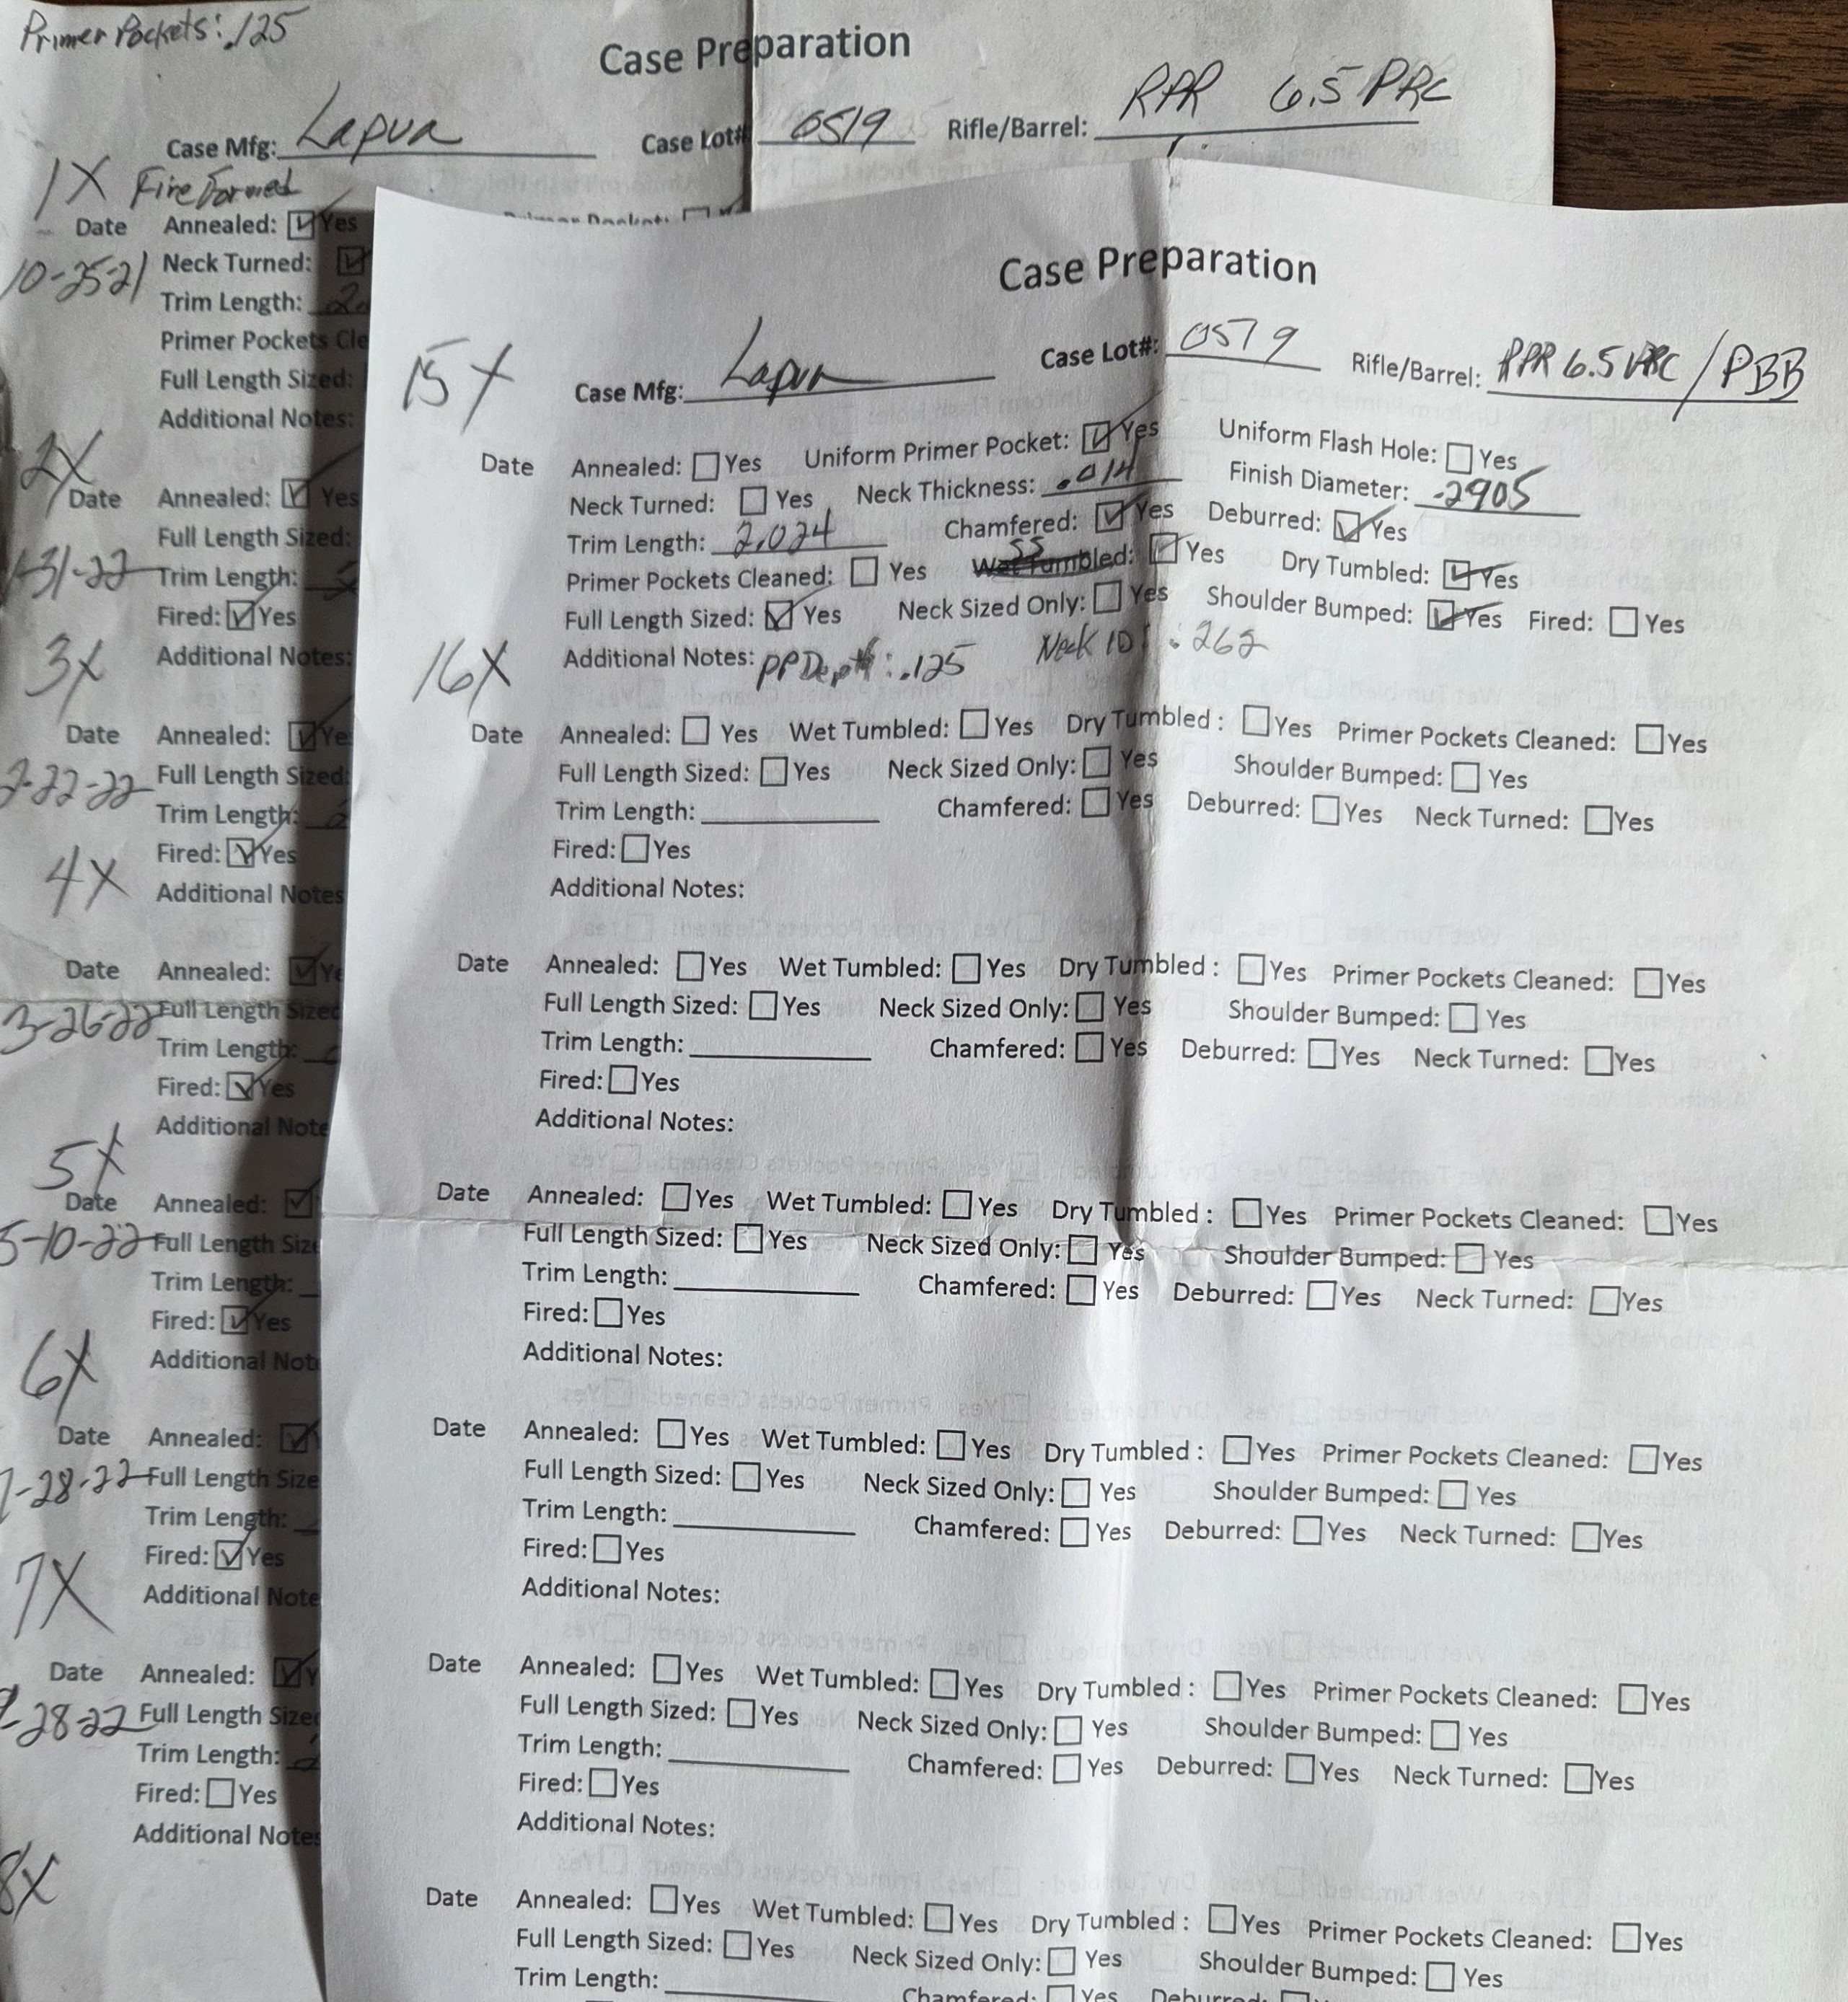 Primer Pockets: .125
Case Preparation
Case Mfg: Lapua Case Lot# 0519 Rifle/Barrel: RPR 6.5 PRC
1X Fire Formed
Date Annealed: Yes
10-25-21 Neck Turned:
Trim Length: 2.
Primer Pockets Cle
Full Length Sized:
Additional Notes:
2X
Date Annealed: Yes
Full Length Sized:
1-31-22 Trim Length:
Fired: Yes
3X Additional Notes:
Date Annealed: Ye
2-22-22 Full Length Sized:
Trim Length:
Fired: Yes
4X Additional Notes
Date Annealed: Ye
3-26-22 Full Length Sized
Trim Length:
Fired: Yes
Additional Note
5X
Date Annealed:
5-10-22 Full Length Size
Trim Length:
Fired: Yes
6X Additional Not
Date Annealed:
-28-22 Full Length Size
Trim Length:
Fired: Yes
7X Additional Note
Date Annealed: Y
-28-22 Full Length Size
Trim Length:
Fired: Yes
Additional Notes
8X
Case Preparation
15X Case Mfg: Lapua Case Lot#: 0579 Rifle/Barrel: RPR 6.5 PRC / PBB
Date Annealed: Yes Uniform Primer Pocket: Yes Uniform Flash Hole: Yes
Neck Turned: Yes Neck Thickness: .014 Finish Diameter: .2905
Trim Length: 2.024 Chamfered: Yes Deburred: Yes
Primer Pockets Cleaned: Yes SS Wet Tumbled: Yes Dry Tumbled: Yes
Full Length Sized: Yes Neck Sized Only: Yes Shoulder Bumped: Yes Fired: Yes
16X Additional Notes: PP Depth: .125 Neck ID: .262
Date Annealed: Yes Wet Tumbled: Yes Dry Tumbled : Yes Primer Pockets Cleaned: Yes
Full Length Sized: Yes Neck Sized Only: Yes Shoulder Bumped: Yes
Trim Length: Chamfered: Yes Deburred: Yes Neck Turned: Yes
Fired: Yes
Additional Notes:
Date Annealed: Yes Wet Tumbled: Yes Dry Tumbled : Yes Primer Pockets Cleaned: Yes
Full Length Sized: Yes Neck Sized Only: Yes Shoulder Bumped: Yes
Trim Length: Chamfered: Yes Deburred: Yes Neck Turned: Yes
Fired: Yes
Additional Notes:
Date Annealed: Yes Wet Tumbled: Yes Dry Tumbled : Yes Primer Pockets Cleaned: Yes
Full Length Sized: Yes Neck Sized Only: Yes Shoulder Bumped: Yes
Trim Length: Chamfered: Yes Deburred: Yes Neck Turned: Yes
Fired: Yes
Additional Notes:
Date Annealed: Yes Wet Tumbled: Yes Dry Tumbled : Yes Primer Pockets Cleaned: Yes
Full Length Sized: Yes Neck Sized Only: Yes Shoulder Bumped: Yes
Trim Length: Chamfered: Yes Deburred: Yes Neck Turned: Yes
Fired: Yes
Additional Notes:
Date Annealed: Yes Wet Tumbled: Yes Dry Tumbled : Yes Primer Pockets Cleaned: Yes
Full Length Sized: Yes Neck Sized Only: Yes Shoulder Bumped: Yes
Trim Length: Chamfered: Yes Deburred: Yes Neck Turned: Yes
Fired: Yes
Additional Notes:
Date Annealed: Yes Wet Tumbled: Yes Dry Tumbled : Yes Primer Pockets Cleaned: Yes
Full Length Sized: Yes Neck Sized Only: Yes Shoulder Bumped: Yes
Trim Length: Chamfered: Yes Deburred: